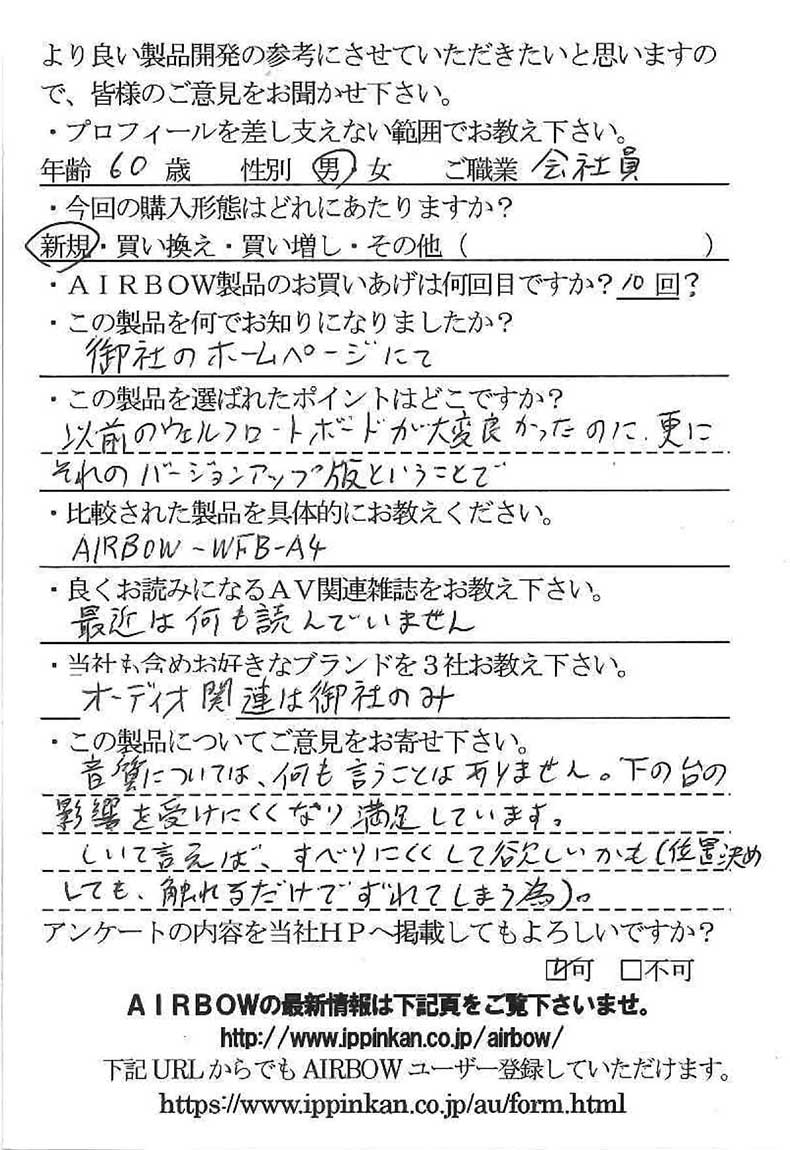 より良い製品開発の参考にさせていただきたいと思いますの
で、皆様のご意見をお聞かせ下さい。
・プロフィールを差し支えない範囲でお教え下さい。
年齢 60 歳 性別 男・女 ご職業 会社員
・今回の購入形態はどれにあたりますか？
新規・買い換え・買い増し・その他（ ）
・ＡＩＲＢＯＷ製品のお買いあげは何回目ですか？10 回？
・この製品を何でお知りになりましたか？
御社のホームページにて
・この製品を選ばれたポイントはどこですか？
以前のウェルフロートボードが大変良かったのに、更に
それのバージョンアップ版ということで
・比較された製品を具体的にお教えください。
AIRBOW-WFB-A4
・良くお読みになるＡＶ関連雑誌をお教え下さい。
最近は何も読んでいません
・当社も含めお好きなブランドを３社お教え下さい。
オーディオ関連は御社のみ
・この製品についてご意見をお寄せ下さい。
音質については、何も言うことはありません。下の台の
影響を受けにくくなり満足しています。
しいて言えば、すべりにくくして欲しいかも（位置決め
しても、触れるだけでずれてしまう為）。
アンケートの内容を当社ＨＰへ掲載してもよろしいですか？
☑可 □不可
ＡＩＲＢＯＷの最新情報は下記頁をご覧下さいませ。
http://www.ippinkan.co.jp/airbow/
下記 URL からでも AIRBOW ユーザー登録していただけます。
https://www.ippinkan.co.jp/au/form.html